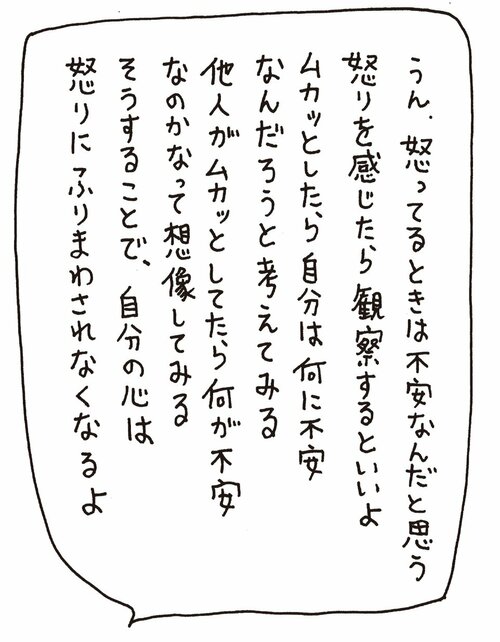 うん、怒ってるときは不安なんだと思う
怒りを感じたら観察するといいよ
ムカッとしたら自分は何に不安
なんだろうと考えてみる
他人がムカッとしてたら何が不安
なのかなって想像してみる
そうすることで、自分の心は
怒りにふりまわされなくなるよ